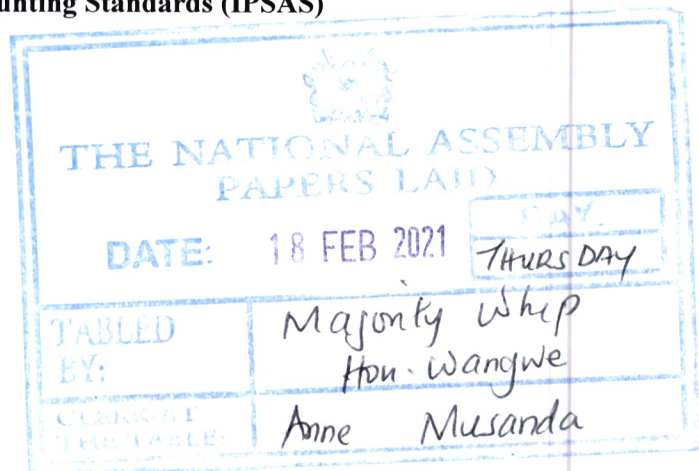 unting Standards (IPSAS)
THE NATIONAL ASSEMBLY
PAPERS LAID
DAY.
DATE: 18 FEB 2021 THURSDAY
TABLED BY: Majority Whip
Hon. Wangwe
CLERK-AT THE-TABLE: Anne Musanda